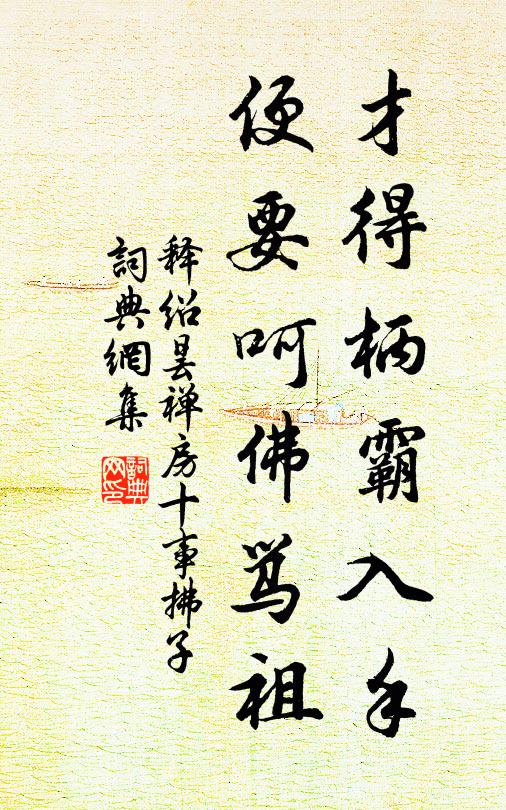 才得柄霸入手
便要呵佛骂祖
释绍昙禅房十事拂子
詞典網集
詞典网印